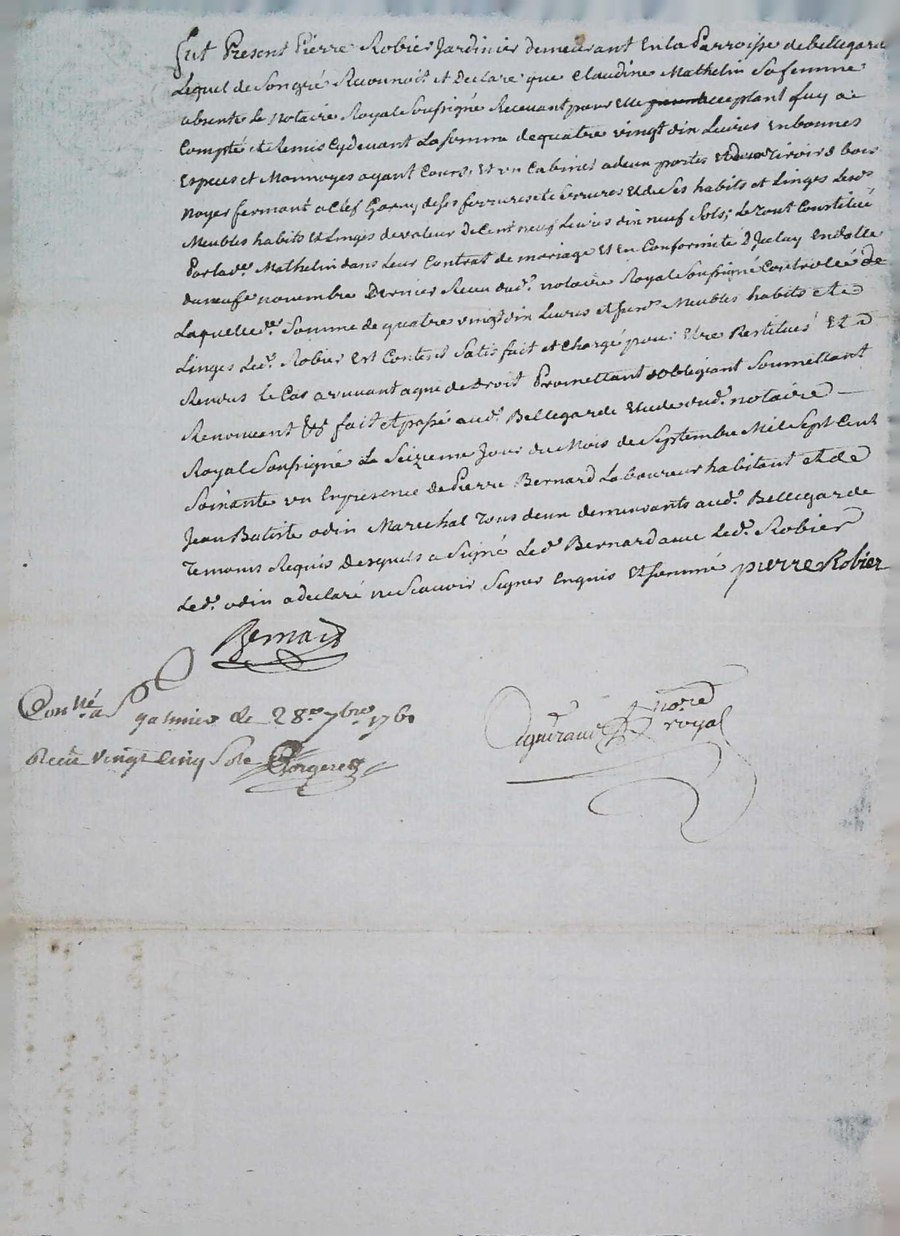 fut Present Pierre Robier Jardinier demeurant En la Parroisse de bellegarde
Lequel de Son gré Reconnoit et Declare que Claudine Mathelin Sa femme
absente Le Notaire Royal Soussigné Recevant pour Elle acceptant luy a
Compté et Remis Cydevant La Somme de quatre vingt dix Livres En bonnes
Especes et Monnoyes ayant Cours, Et un Cabinet a deux portes Et deux tiroirs bois
noyer fermant a Clef Garny de ses ferrures et Serrures Et de Ses habits et Linges Lesds
Meubles habits Et Linges de valeur de Cent neuf Livres dix neuf Sols, Le tout Constitué
Par lade Mathelin dans Leur Contrat de mariage Et En Conformité D'Iceluy En datte
du neufe novembre Dernier Receu dud. notaire Royal Soussigné Controllé de
Laquelle Somme de quatre vingt dix Livres et Meubles habits et
Linges Led. Robier Est Content Satisfait et Chargé pour Etre Restitués Et
Rendus le Cas arrivant a qui de droit Promettant obligeant Soumettant
Renoncent &a fait et passé aud. Bellegarde Etude dud. notaire
Royal Soussigné Le Seizeme Jour du Mois de Septembre Mil Sept Cent
Soixante un En presence de Pierre Bernard Laboureur habitant et de
Jean Batiste odin Marechal Tous deux demeurants aud. Bellegarde
Temoins Requis Desquels a Signé Led. Bernard avec Led. Robier
Led. odin a declaré ne Scavoir Signer Enquis Et Sommé pierre Robier
Bernard
Conllé a St galmier le 28e 7bre 1761
Receu vingt Cinq Sols
nore royal